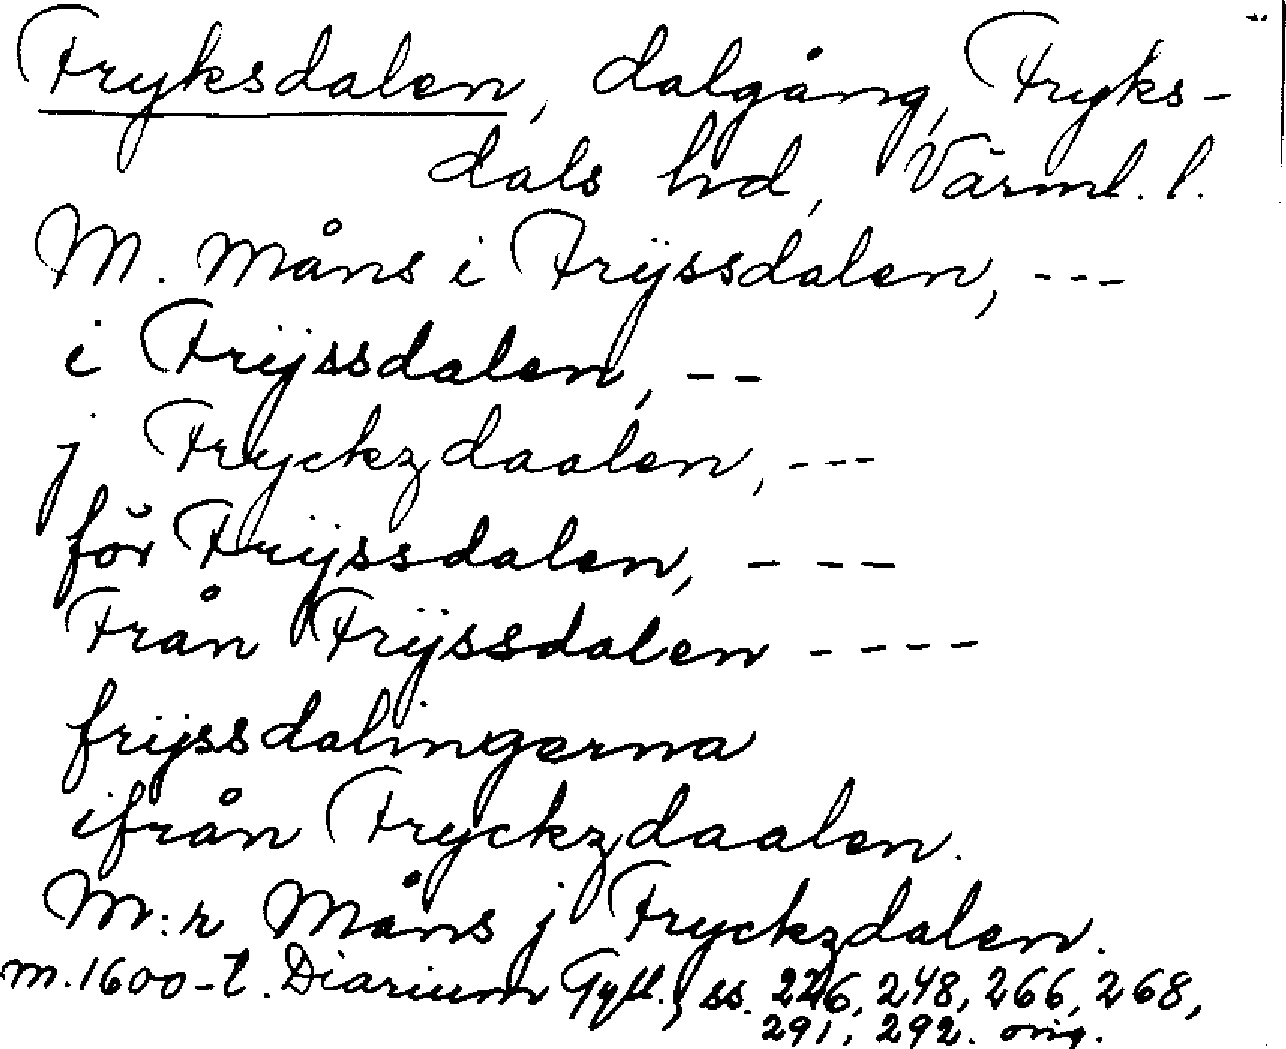 Fryksdalen, dalgång, Fryks-
dals hd, Värml. l.
M. Måns i Frÿssdalen, ---
i Frÿssdalen, --
j Fryckzdaalen, ---
för Frÿssdalen, ---
Från Frÿssdalen ----
frÿssdalingerna
ifrån Fryckzdaalen.
M:r Måns j Fryckzdalen.
m.1600-t. Diarium Gyll., ss. 226, 248, 266, 268,
291, 292. orig.